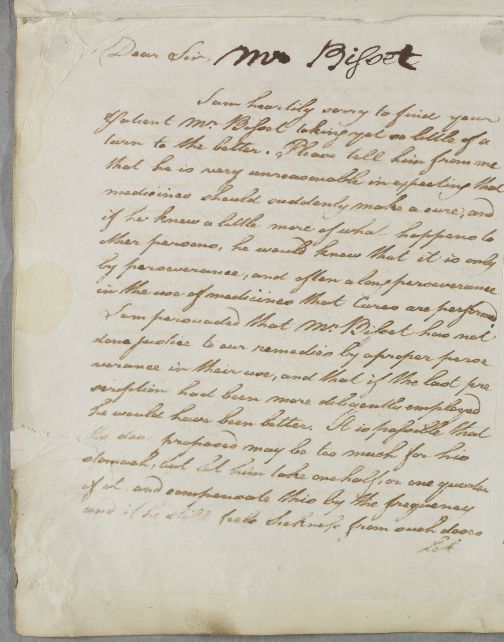 Dear Sir, Mr Bisset
I am heartily sorry to find your
Patient Mr. Bisset taking yet so little of a
turn to the better. Please tell him from me
that he is very unreasonable in expecting that
medicines should suddenly make a cure, and
if he knew a little more of what happens to
other persons, he would know that it is only
by perseverance, and often a long perseverance
in the use of medicines that Cures are performed
I am persuaded that Mr. Bisset has not
done justice to our remedies by a proper perse
verance in their use, and that if the last pre
scription had been more diligently employed
he would have been better. It is possible that
the dose proposed may be too much for his
stomach, but let him take one half, or one quarter
of it and compensate this by the frequency
and if he still feels Sickness from such doses
Let